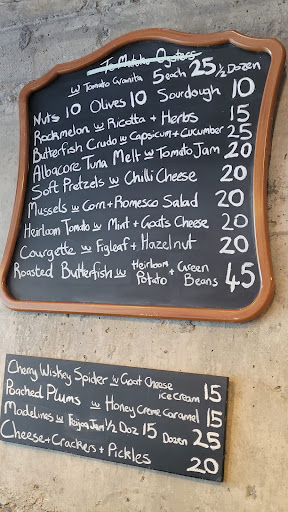 Te Matuku Oysters
w Tomato Granita 5 each 25 1/2 Dozen
Nuts 10 Olives 10 Sourdough 10
Rockmelon w Ricotta + Herbs 15
Butterfish Crudo w Capsicum + Cucumber 25
Albacore Tuna Melt w Tomato Jam 20
Soft Pretzels w Chilli Cheese 20
Mussels w Corn + Romesco Salad 20
Heirloom Tomato w Mint + Goats Cheese 20
Courgette w Figleaf + Hazelnut 20
Roasted Butterfish w Heirloom Potato + Green Beans 45
Cherry Wiskey Spider w Goat Cheese Ice Cream 15
Poached Plums w Honey Creme Caramel 15
Madelines w Feijoa Jam 1/2 Doz 15 Dozen 25
Cheese + Crackers + Pickles 20